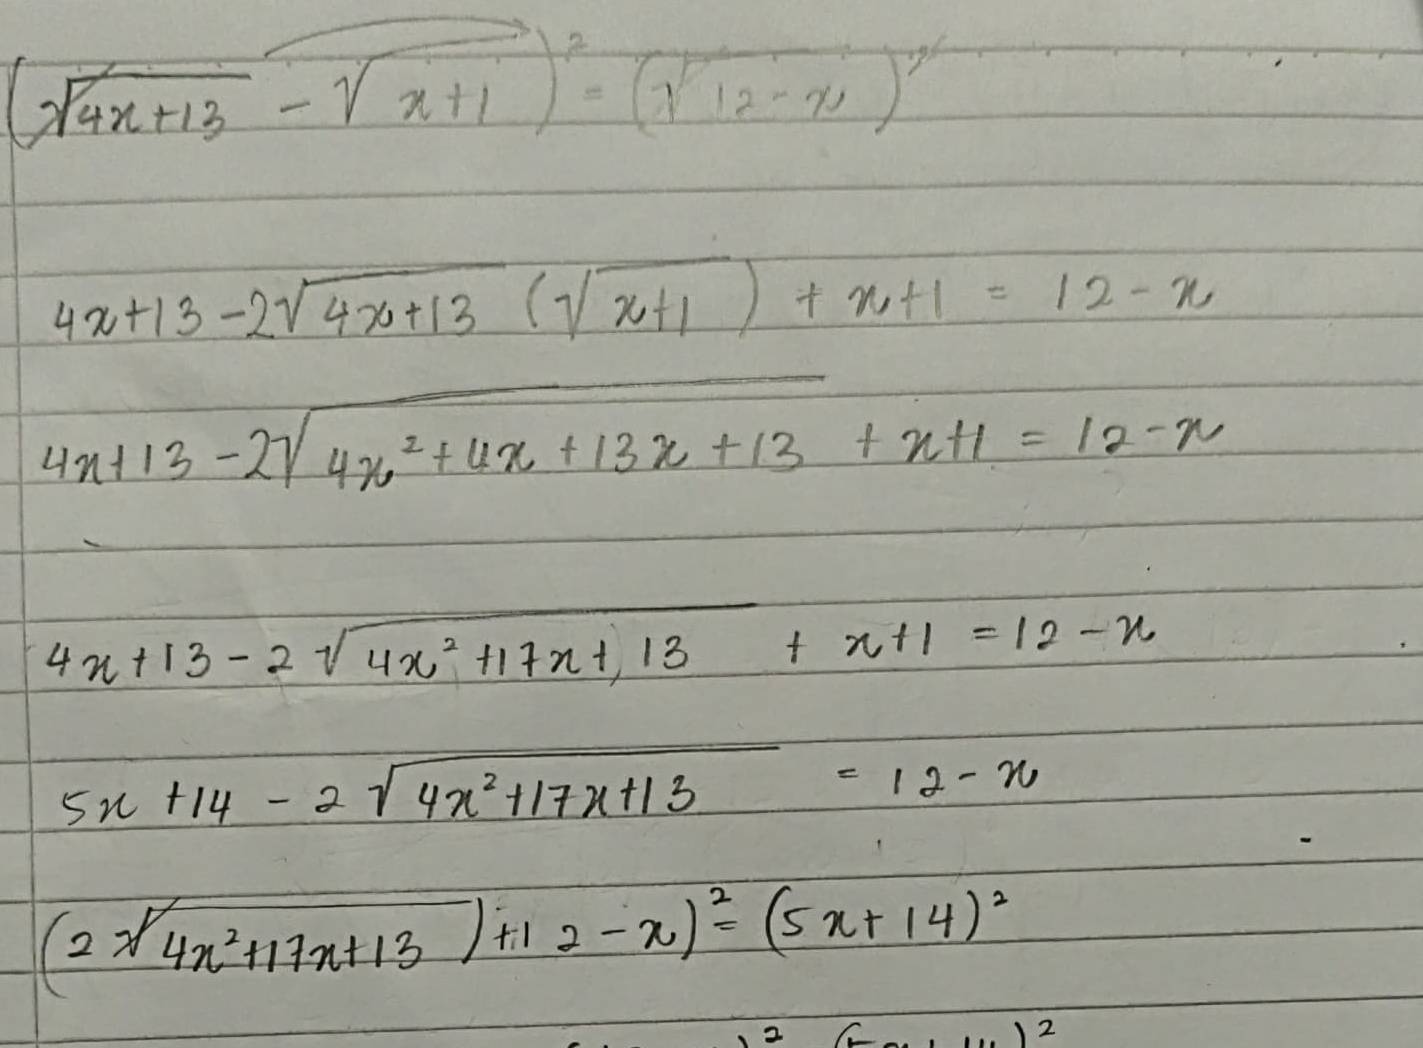 (√4x+13 - √x+1)² = (√12-x)²
4x+13-2√4x+13 (√x+1) + x+1 = 12-x
4x+13-2√4x²+4x+13x+13 + x+1 = 12-x
4x+13-2√4x²+17x+13 + x+1 = 12-x
5x+14-2√4x²+17x+13 = 12-x
(2√4x²+17x+13)+12-x)² = (5x+14)²